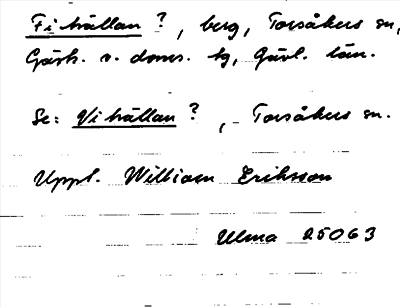 Fihällan?, berg, Torsåkers sn,
Gästr. v. doms. tg, Gävl. län.
Se: Vihällan?, Torsåkers sn.
Uppl. William Eriksson
Ulma 25063